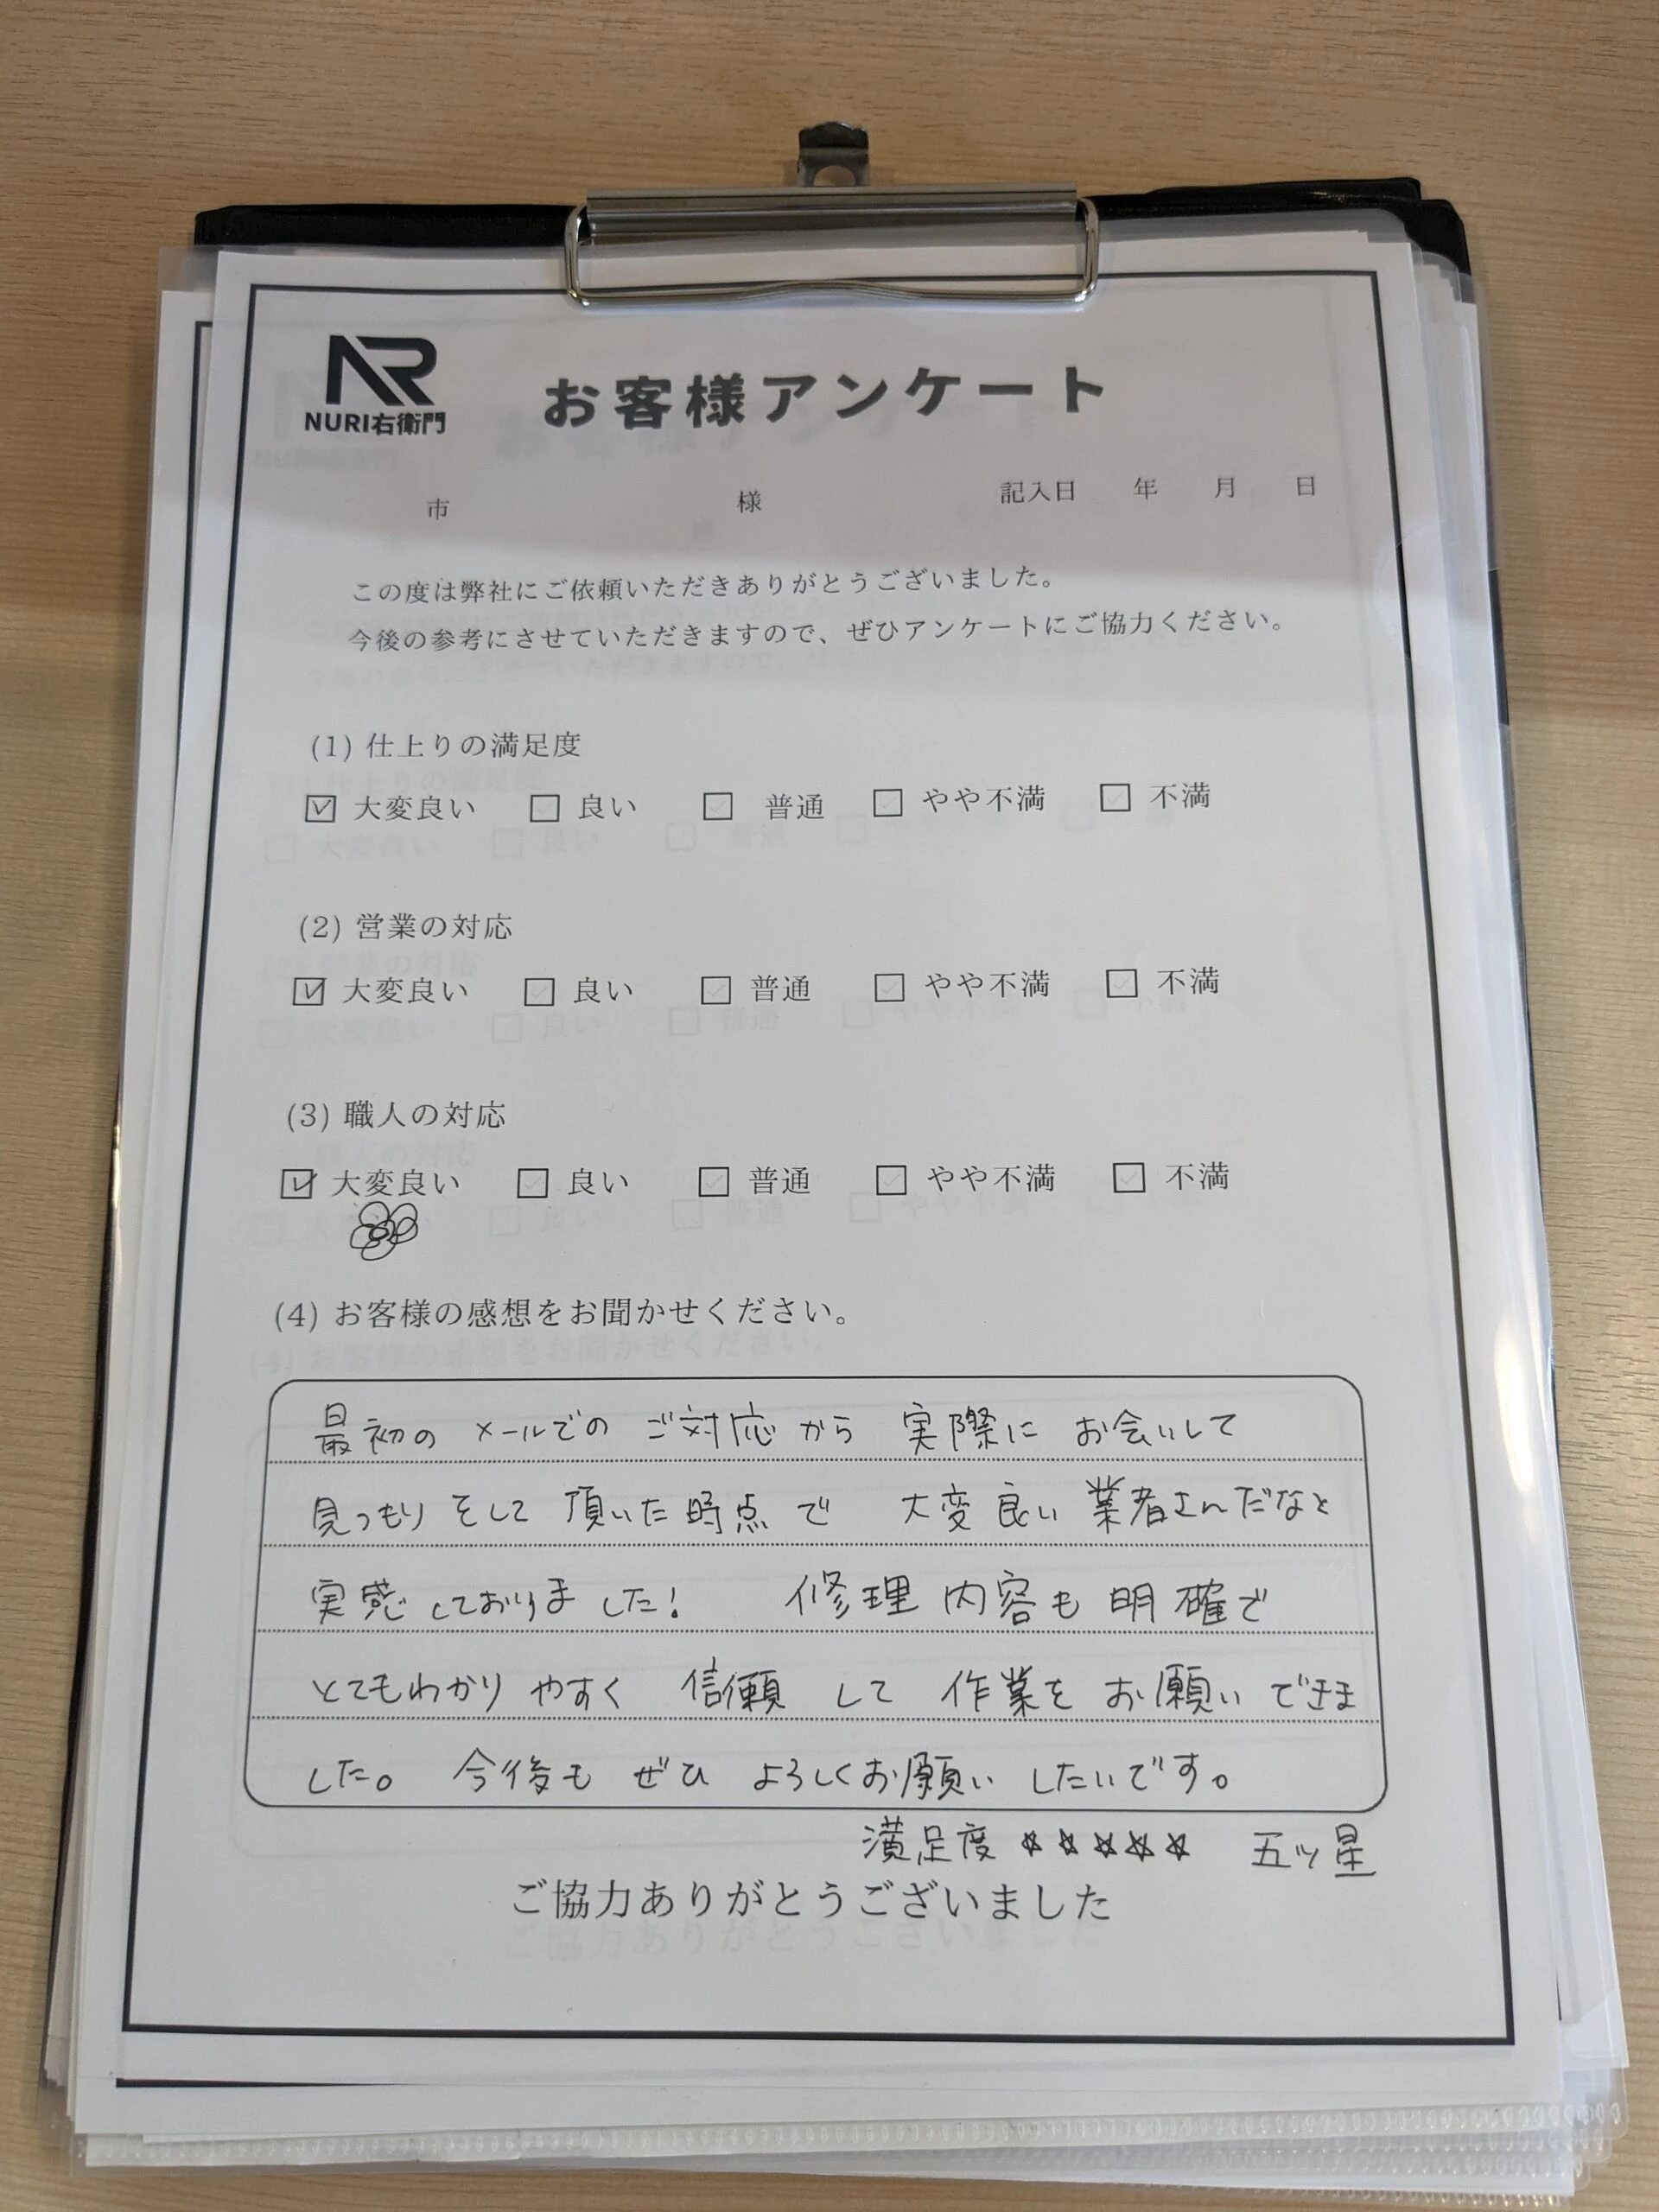 NR
NURI右衛門
お客様アンケート
市 様 記入日 年 月 日
この度は弊社にご依頼いただきありがとうございました。
今後の参考にさせていただきますので、ぜひアンケートにご協力ください。
(1) 仕上りの満足度
☑ 大変良い □ 良い □ 普通 □ やや不満 □ 不満
(2) 営業の対応
☑ 大変良い □ 良い □ 普通 □ やや不満 □ 不満
(3) 職人の対応
☑ 大変良い □ 良い □ 普通 □ やや不満 □ 不満
(4) お客様の感想をお聞かせください。
最初の メールでの ご対応から 実際に お会いして
見つもり をして 頂いた時点で 大変良い業者さんだなと
実感しておりました! 修理内容も明確で
とてもわかりやすく 信頼 して 作業を お願い できま
した。 今後も ぜひ よろしくお願い したいです。
満足度 ☆☆☆☆☆ 五ッ星
ご協力ありがとうございました